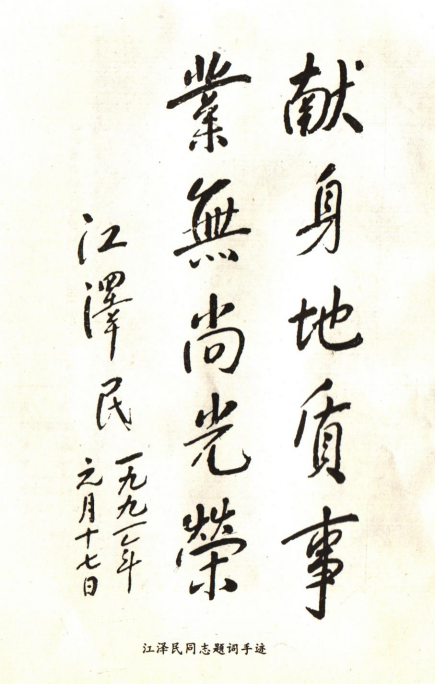 献身地质事
業無尚光榮
江澤民
一九九一年
元月十七日
江泽民同志题词手迹